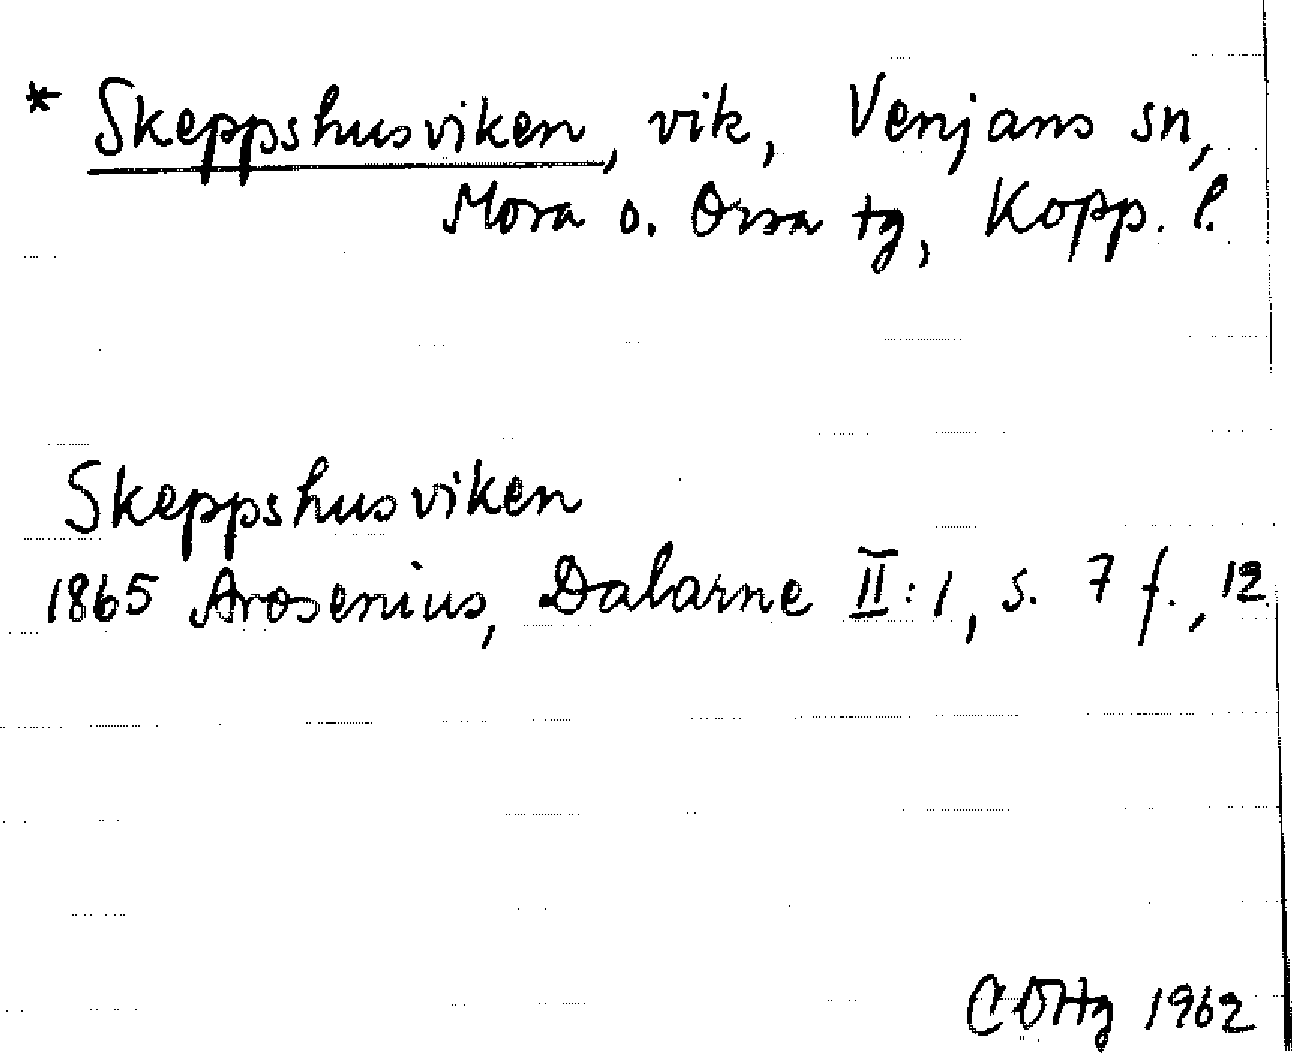 * Skeppshusviken, vik, Venjans sn,
Mora o. Orsa tg, Kopp. l.
Skeppshusviken
1865 Arosenius, Dalarne II:1, s. 7 f., 12.
1962